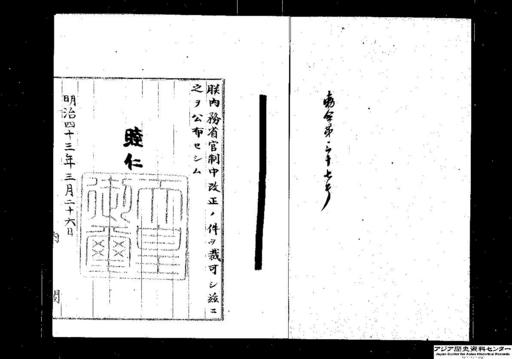 勅令第百三十七号
朕内務省官制中改正ノ件ヲ裁可シ茲ニ
之ヲ公布セシム
睦仁
天皇御璽
明治四十三年三月二十六日
内閣
アジア歴史資料センター
Japan Center for Asian Historical Records